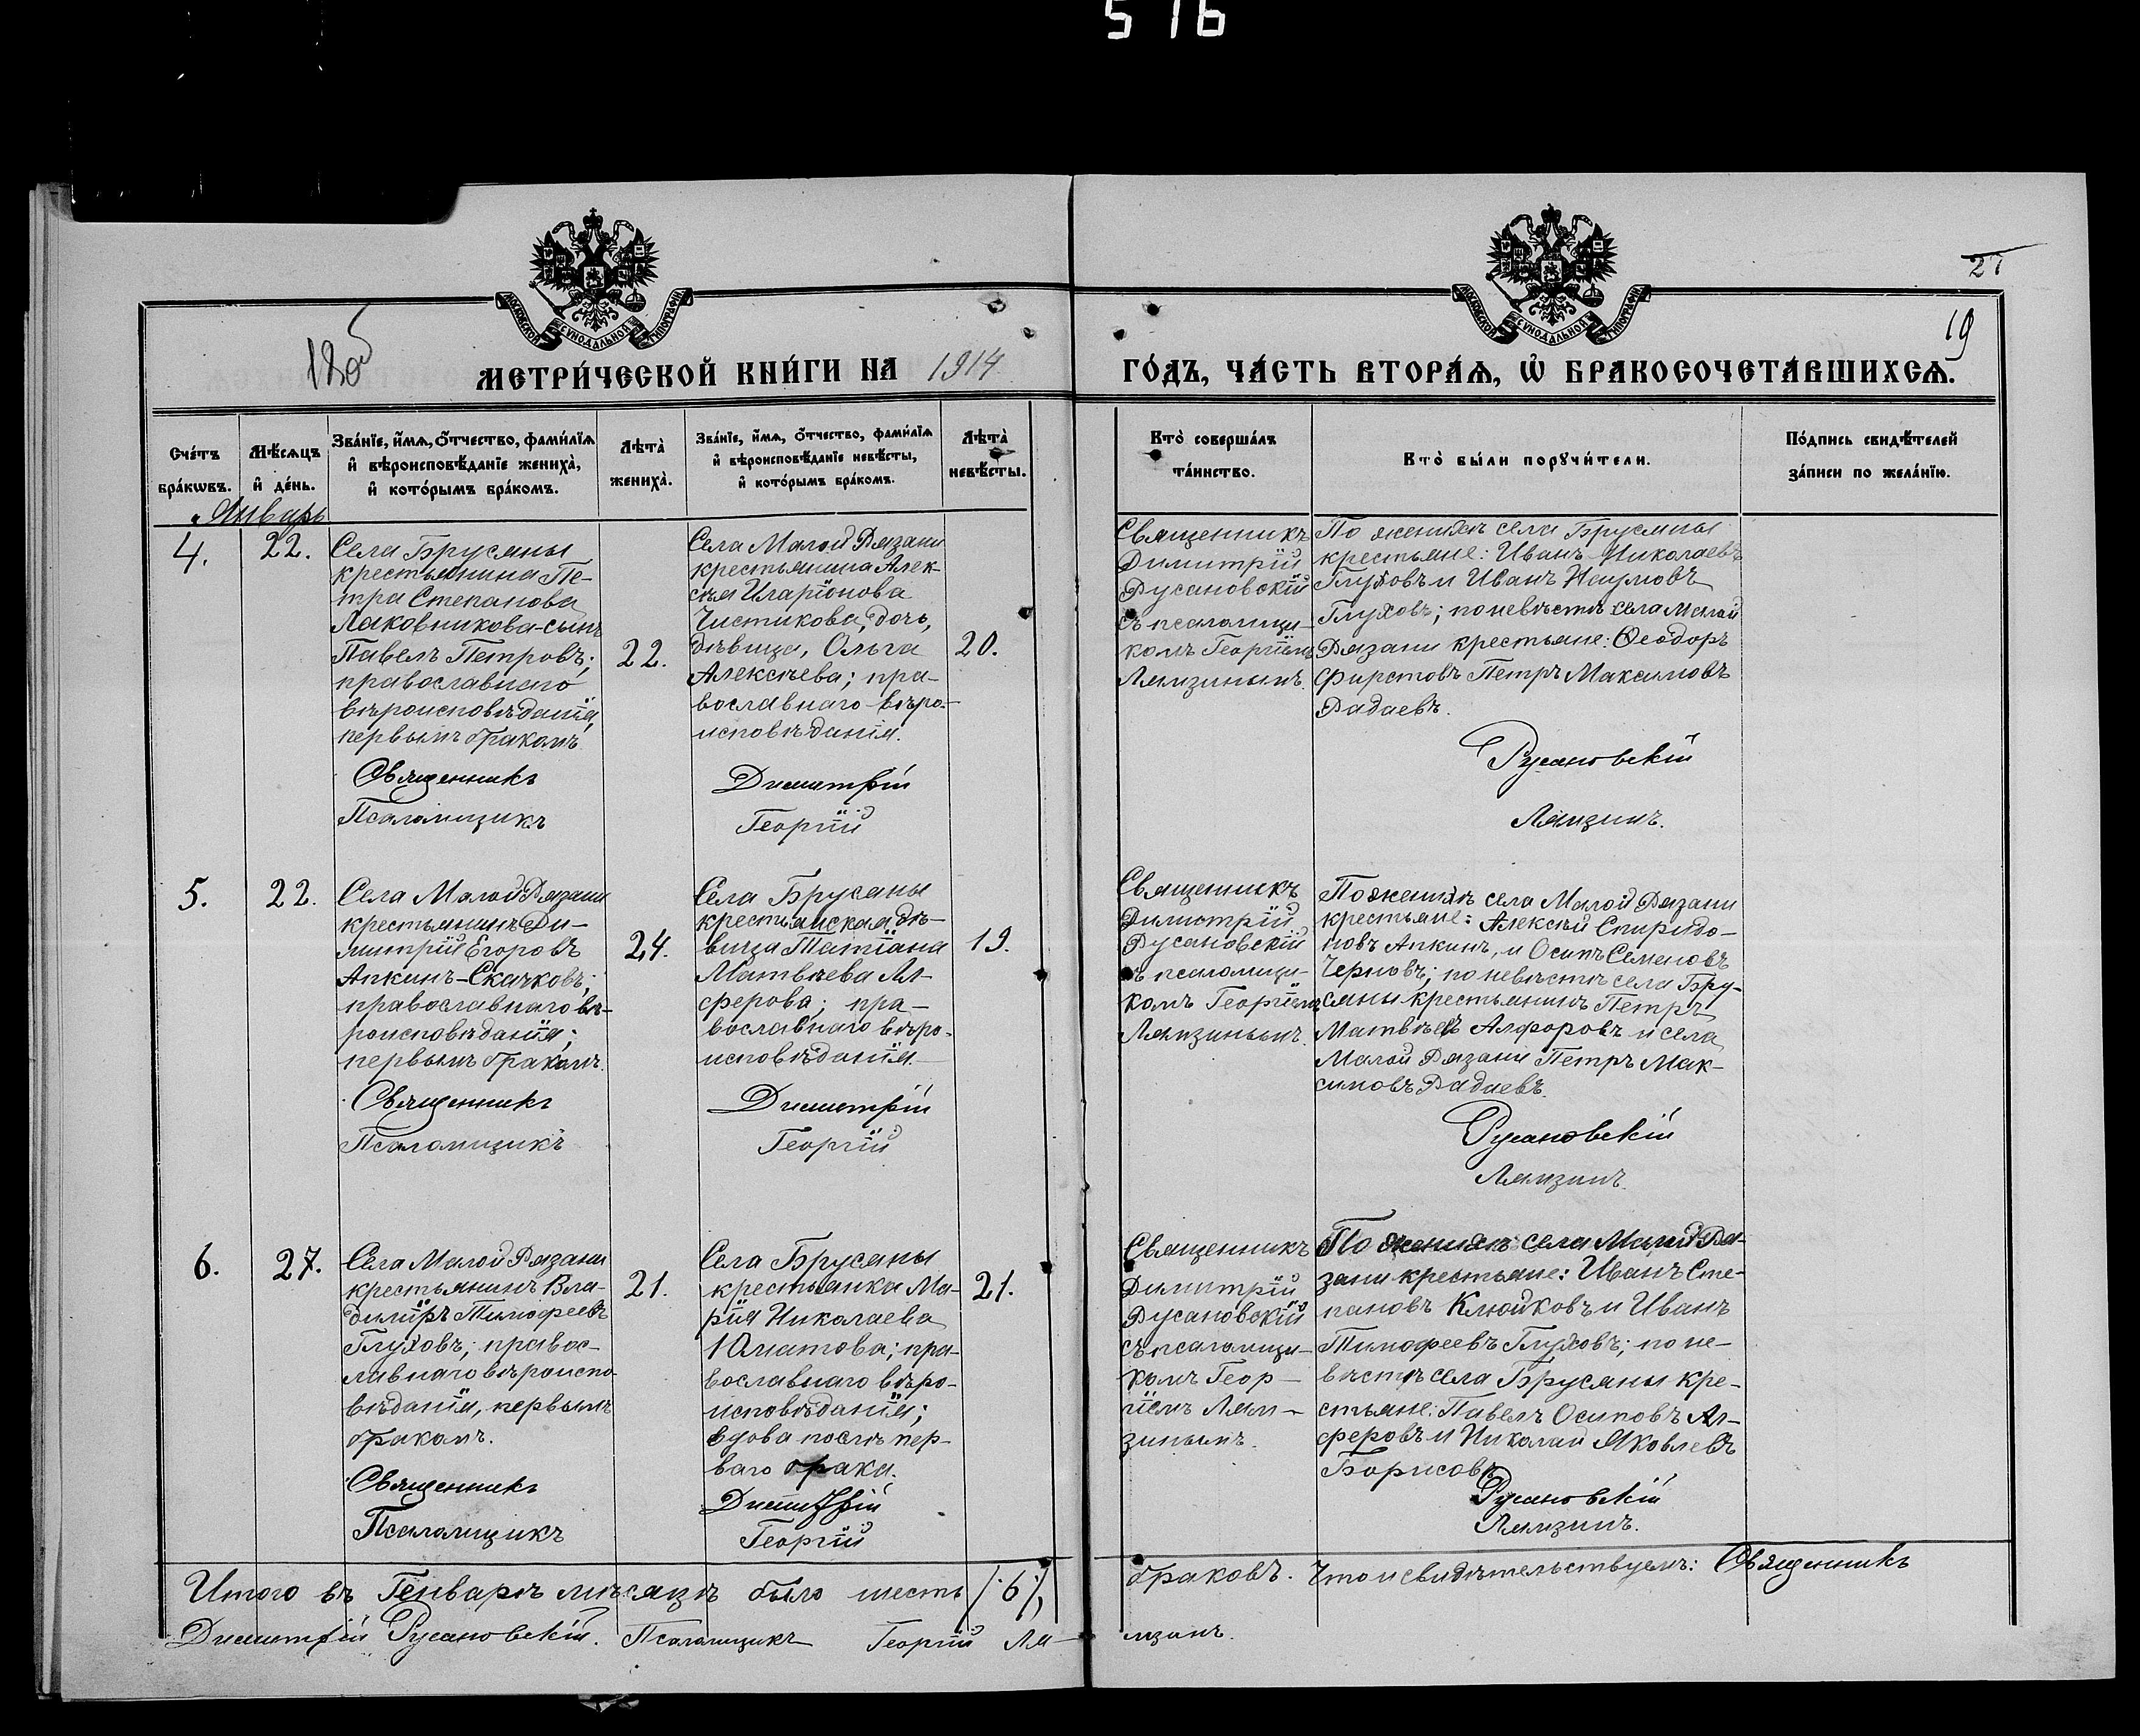 516
27
19
МОСКОВСКОЙ СѴНОДАЛЬНОЙ ТИПОГРАФІИ
МОСКОВСКОЙ СѴНОДАЛЬНОЙ ТИПОГРАФІИ
МЕТРИ́ЧЕСКОЙ КНИ́ГИ НА 1914
ГО́ДЪ, ЧА́СТЬ ВТОРА́Ѧ, Ѡ҆ БРАКОСОЧЕТА́ВШИХСѦ.
Сче́тъ
бра́кѡвъ.
Мѣ́сѧцъ
и҆ де́нь.
Зва́нїе, и҆́мѧ, ѻ҆́тчество, фами́лїѧ
и҆ вѣроисповѣ́данїе жениха̀,
и҆ кото́рымъ бра́комъ.
Лѣта̀
жениха̀.
Зва́нїе, и҆́мѧ, ѻ҆́тчество, фами́лїѧ
и҆ вѣроисповѣ́данїе невѣ́сты,
и҆ кото́рымъ бра́комъ.
Лѣта̀
невѣ́сты.
Кто̀ соверша́лъ
та́инство.
Кто̀ бы́ли порꙋчи́тели.
По́дпись свидѣ́телей
за́писи по жела́нїю.
Январь
4.
22.
Села Брусяны
крестьянина Пе-
тра Степанова
Лаковникова-сынъ
Павелъ Петровъ;
православнаго
вѣроисповѣданія,
первымъ бракомъ
22.
Села Малой Рязани
крестьянина Алек-
сѣя Иларіонова
Чистикова, дочь,
дѣвица, Ольга
Алексѣева; пра-
вославнаго вѣро-
исповѣданія.
20.
Священникъ
Димитрій
Русановскій
съ псаломщи-
комъ Георгіемъ
Лямзинымъ.
По женихѣ села Брусяны
крестьяне: Иванъ Николаевъ
Глуховъ и Иванъ Наумовъ
Глуховъ; по невѣстѣ села Малой
Рязани крестьяне: Ѳеодоръ
Фирстовъ Петръ Максимовъ
Радаевъ.
Священникъ Димитрій Русановскій
Псаломщикъ Георгій Лямзинъ.
5.
22.
Села Малой Рязани
крестьянинъ Ди-
митрій Егоровъ
Апкинъ-Скачковъ;
православнаго вѣ-
роисповѣданія;
первымъ бракомъ.
24.
Села Брусяны
крестьянская дѣ-
вица Татіана
Матвѣева Ал-
ферова; пра-
вославнаго вѣро-
исповѣданія.
19.
Священникъ
Димитрій
Русановскій
съ псаломщи-
комъ Георгіемъ
Лямзинымъ.
По женихѣ села Малой Рязани
крестьяне: Алексѣй Спиридо-
новъ Апкинъ, и Осипъ Семеновъ
Черновъ; по невѣстѣ села Бру-
сяны крестьянинъ Петръ
Матвѣевъ Алфоровъ и села
Малой Рязани Петръ Мак-
симовъ Радаевъ.
Священникъ Димитрій Русановскій
Псаломщикъ Георгій Лямзинъ.
6.
27.
Села Малой Рязани
крестьянинъ Вла-
димиръ Тимофеевъ
Глуховъ; правос-
лавнаго вѣроиспо-
вѣданія, первымъ
бракомъ.
21.
Села Брусяны
крестьянка Ма-
рія Николаева
Юматова; пра-
вославнаго вѣро-
исповѣданія;
вдова послѣ пер-
ваго брака.
21.
Священникъ
Димитрій
Русановскій
съ псаломщи-
комъ Геор-
гіемъ Лям-
зинымъ.
По женихѣ села Малой Ря-
зани крестьяне: Иванъ Сте-
пановъ Клюйковъ и Иванъ
Тимофеевъ Глуховъ; по не-
вѣстѣ села Брусяны кре-
стьяне: Павелъ Осиповъ Ал-
феровъ и Николай Яковлевъ
Борисовъ
Священникъ Димитрій Русановскій
Псаломщикъ Георгій Лямзинъ.
Итого въ Генварѣ мѣсяцѣ было шесть /:6:/, браковъ. Что и свидѣтельствуемъ: Священникъ
Димитрій Русановскій. Псаломщикъ Георгій Ля-мзинъ.